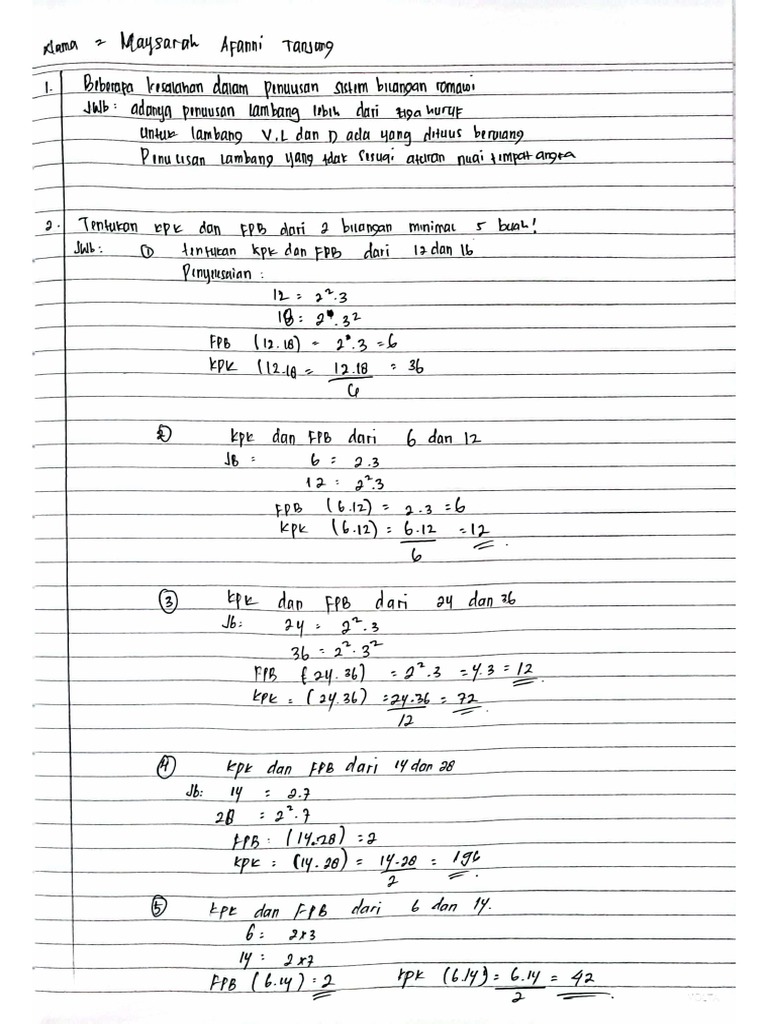 Nama = Maysarah Afanni Tanjung
1. Beberapa kesalahan dalam penulisan sistem bilangan romawi
Jwb: adanya penulisan lambang lebih dari tiga huruf
untuk lambang V, L dan D ada yang ditulis berulang
Penulisan lambang yang tdak sesuai aturan nilai tempat angka
2. Tentukan KPK dan FPB dari 2 bilangan minimal 5 buah!
Jwb: ① tentukan KPK dan FPB dari 12 dan 16
Penyelesaian :
12 = 2².3
18 = 2.3²
FPB (12.18) = 2.3 = 6
KPK (12.18 = 12.18 = 36
6
② KPK dan FPB dari 6 dan 12
JB = 6 = 2.3
12 = 2².3
FPB (6.12) = 2.3 = 6
KPK (6.12) = 6.12 = 12
6
③ KPK dan FPB dari 24 dan 36
Jb: 24 = 2².3
36 = 2².3²
FPB (24.36) = 2².3 = 4.3 = 12
KPK = (24.36) = 24.36 = 72
12
④ KPK dan FPB dari 14 dan 28
Jb: 14 = 2.7
28 = 2².7
FPB : (14.28) = 2
KPK : (14.28) = 14.28 = 196
2
⑤ KPK dan FPB dari 6 dan 14.
6 = 2x3
14 = 2x7
FPB (6.14) = 2 KPK (6.14) = 6.14 = 42
2